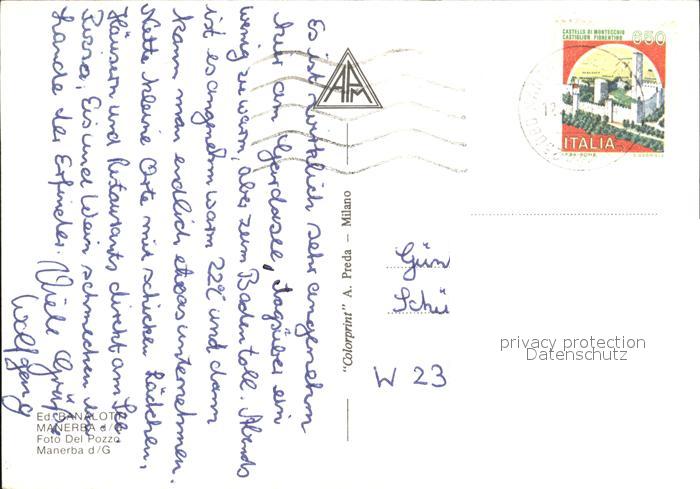 Es ist wirklich sehr angenehm
hier am Gardasee, tagsüber ein
wenig zu warm, aber zum Baden toll. Abends
ist es angenehm warm 22°C und dann
kann man endlich etwas unternehmen.
Nette kleine Orte mit schicken Lädchen,
Häusern und Restaurants direkt am See.
Pizza, Eis und Wein schmecken im
Lande der Erfinder. Viele Grüße
Wolfgang
APM
"Colorprint" A. Preda — Milano
CASTELLO DI MONTECCHIO
CASTIGLION FIORENTINO
650
ITALIA
Gün
Schü
W 23
privacy protection
Datenschutz
Ed. BANALOTTI
MANERBA d/G
Foto Del Pozzo
Manerba d/G